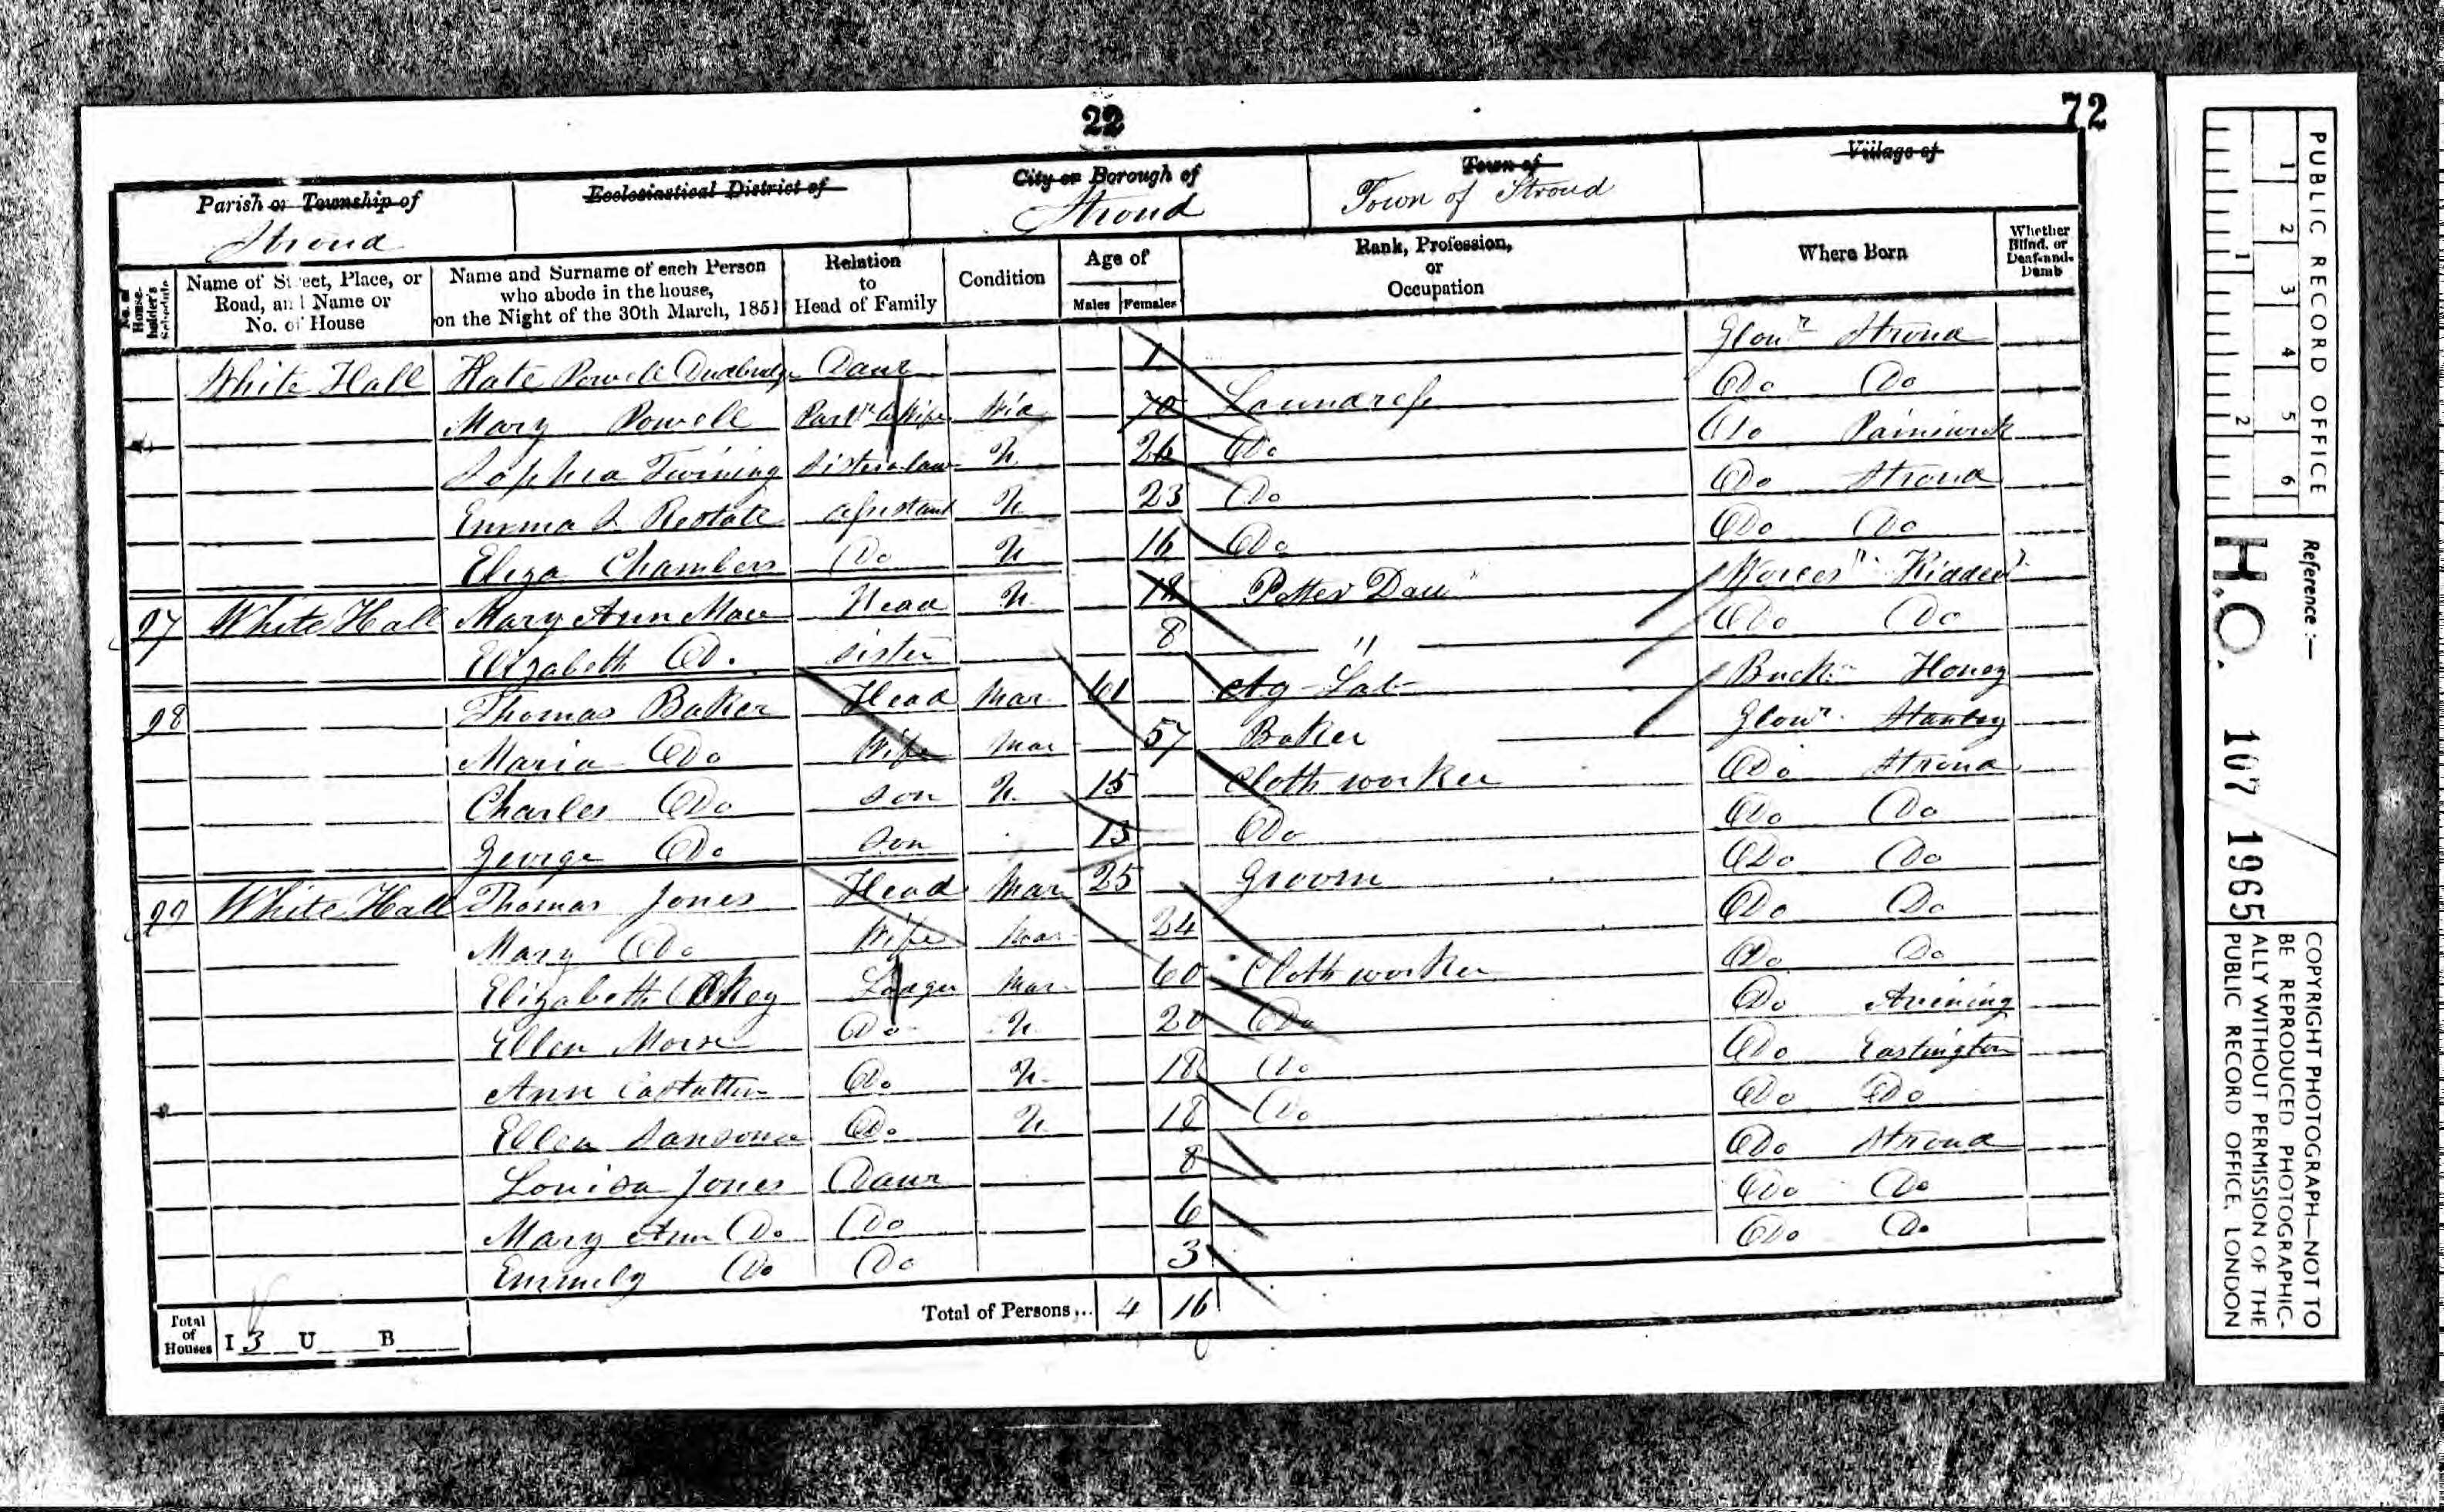 22
72
Parish or Township of
Stroud
Ecclesiastical District of
City or Borough of
Stroud
Town of
Town of Stroud
Village of
No. of House-holder's Schedule
Name of Street, Place, or Road, and Name or No. of House
Name and Surname of each Person who abode in the house, on the Night of the 30th March, 1851
Relation to Head of Family
Condition
Age of
Males Females
Rank, Profession, or Occupation
Where Born
Whether Blind, or Deaf-and-Dumb
White Hall Kate Powell Dudbridge Daur 1 Glour Stroud
Mary Powell Wid 70 Laundress Do Do
Sophia Twining Sister in law U 26 Do Do Painswick
Emma S Restall Assistant U 23 Do Do Stroud
Eliza Chambers Do U 16 Do Do Do
97 White Hall Mary Ann Mace Head U 12 Worcesr
Elizabeth Do. Sister 8 " Do Do
98 Thomas Baker Head Mar 61 Ag Lab
Maria Do Wife Mar 57 Baker Glour Stanley
Charles Do Son U 15 Cloth worker Do Stroud
George Do Son 13 Do Do Do
99 White Hall Thomas Jones Head Mar 25 Groom Do Do
Mary Do Wife Mar 24 Do Do
Elizabeth Lodger Mar 60 Cloth worker Do Do
Ellen Morse Do U 20 Do Do Avening
Ann Do U 18 Do Do Eastington
Ellen Sansome Do U 18 Do Do Do
Louisa Jones Daur 8 Do Stroud
Mary Ann Do Do 6 Do Do
Emmily Do Do 3 Do Do
Total of Houses I 3 U B
Total of Persons... 4 16
PUBLIC RECORD OFFICE
1 2 3 4 5 6
1 2
Reference :—
H.O. 107 1965
COPYRIGHT PHOTOGRAPH—NOT TO
BE REPRODUCED PHOTOGRAPHIC-
ALLY WITHOUT PERMISSION OF THE
PUBLIC RECORD OFFICE, LONDON